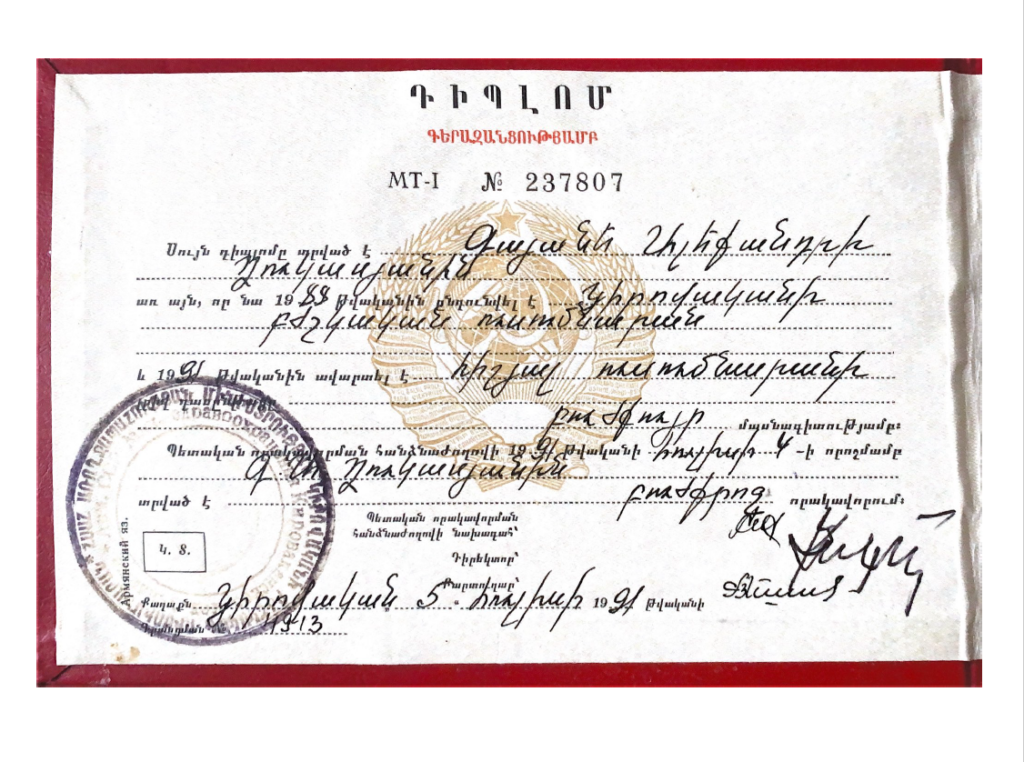 ԴԻՊԼՈՄ
ԳԵՐԱԶԱՆՑՈՒԹՅԱՄԲ
МТ-I № 237807
Սույն դիպլոմը տրված է Գայանե
Ղուկասյանին
առ այն, որ նա 1988 թվականին ընդունվել է Կիրովականի
բժշկական ուսումնարան
և 1991 թվականին ավարտել է նիշյալ ուսումնարանի
բուժքույր մասնագիտությամբ։
Պետական որակավորման հանձնաժողովի 1991 թվականի հուլիսի 4 -ի որոշմամբ
Ղուկասյանին
տրված է որակավորում։
Պետական որակավորման
հանձնաժողովի նախագահ՝
Դիրեկտոր՝
Քարտուղար՝
Կ. Տ.
Армянский яз.
Քաղաքն Կիրովական 5 հուլիսի 1991 թվականի
Գրանցման № 4913